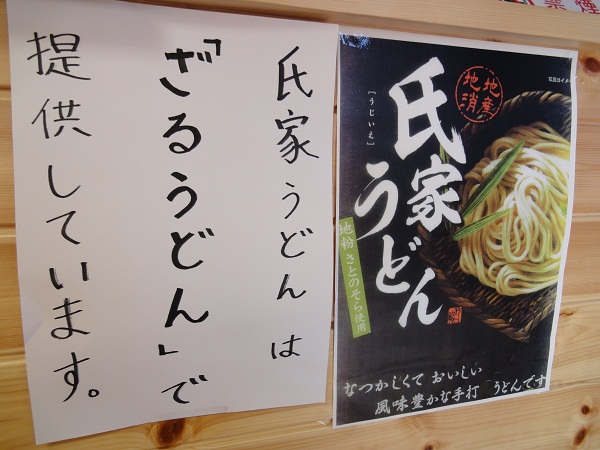 氏家うどんは
「ざるうどん」で
提供しています。
地産
地消
氏家
[うじいえ]
うどん
地粉 さとのそら使用
なつかしくて おいしい
風味豊かな手打 うどんです